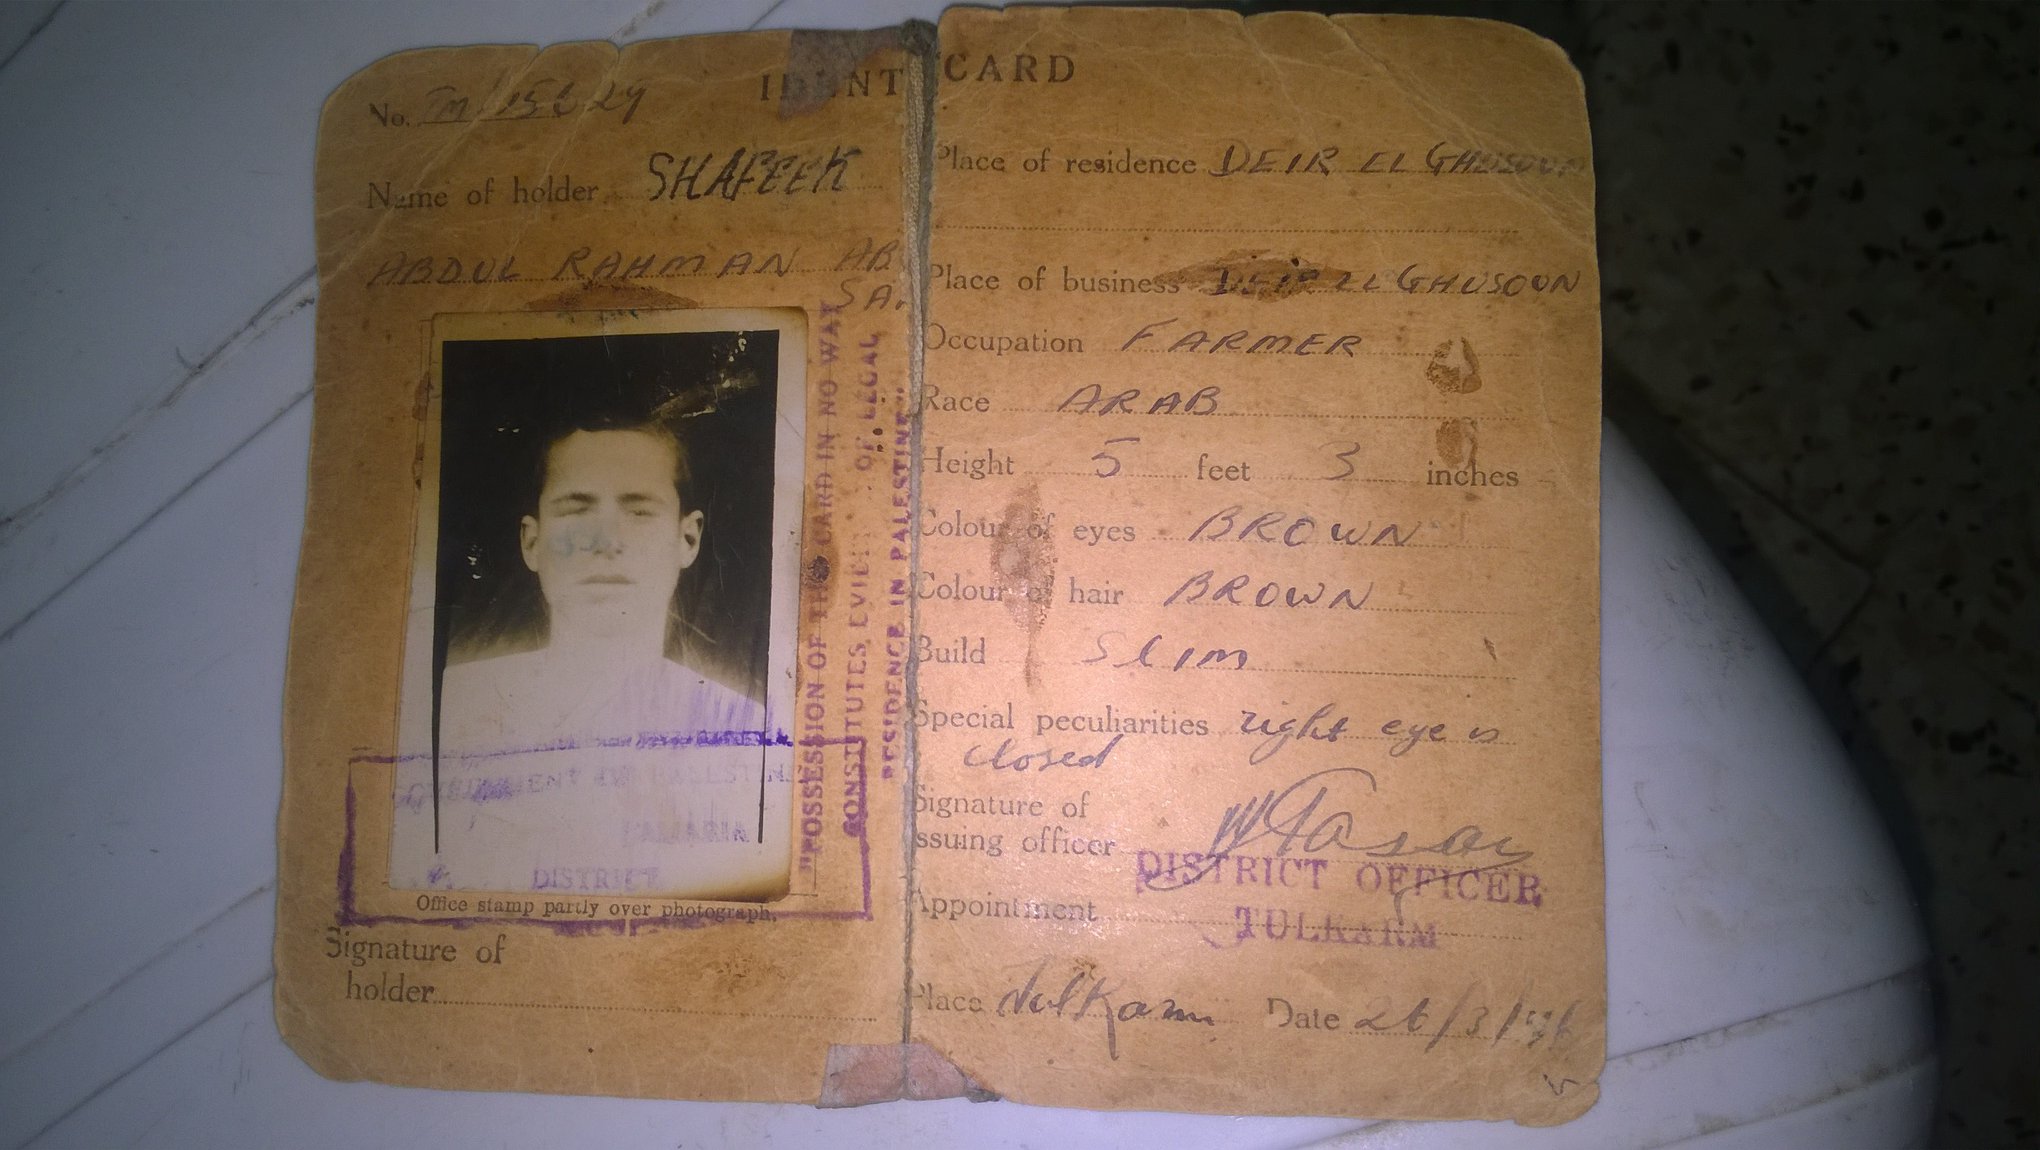 IDENT CARD
No. TM/15629
Name of holder SHAFEEK
ABDUL RAHMAN AB
SA.
"POSSESSION OF THE CARD IN NO WAY
CONSTITUTES OF LEGAL
RESIDENCE IN PALESTINE"
DISTRICT
Office stamp partly over photograph.
Signature of
holder
Place of residence DEIR EL GHUSOON
Place of business DEIR EL GHUSOON
Occupation FARMER
Race ARAB
Height 5 feet 3 inches
Colour of eyes BROWN
Colour of hair BROWN
Build SLIM
Special peculiarities right eye is
closed
Signature of
issuing officer
DISTRICT OFFICER
Appointment
TULKARM
Place Tulkarm Date 26/3/46